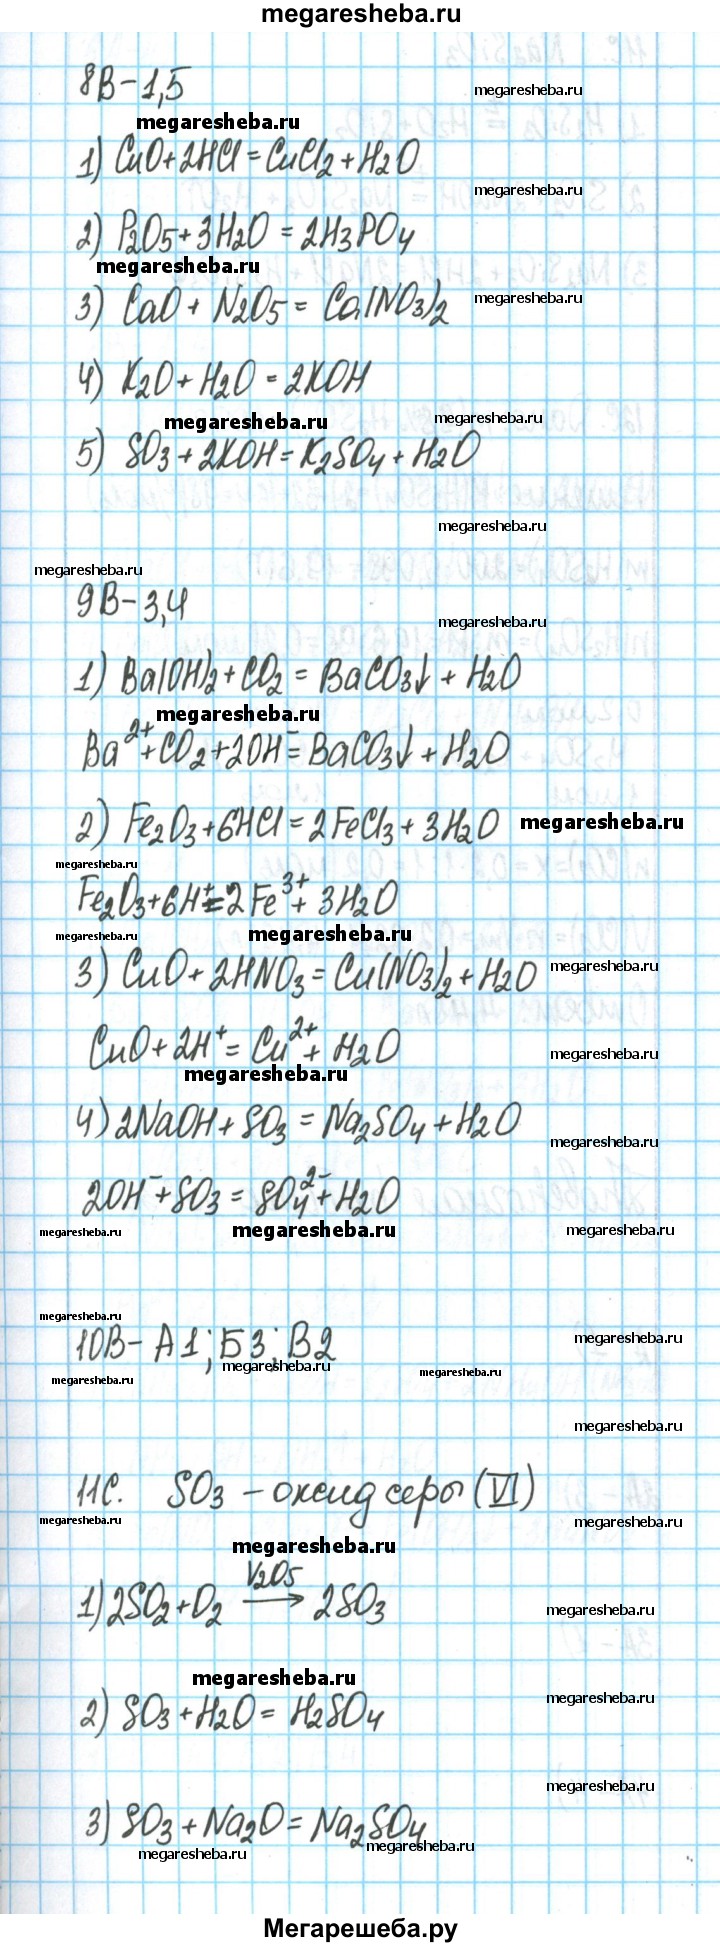 megaresheba.ru
8В-1,5
megaresheba.ru
megaresheba.ru
1) CuO+2HCl=CuCl2+H2O
megaresheba.ru
2) P2O5+3H2O=2H3PO4
megaresheba.ru
3) CaO+N2O5=Ca(NO3)2
megaresheba.ru
4) K2O+H2O=2KOH
megaresheba.ru
megaresheba.ru
5) SO3+2KOH=K2SO4+H2O
megaresheba.ru
megaresheba.ru
9В-3,4
megaresheba.ru
1) Ba(OH)2+CO2=BaCO3↓+H2O
megaresheba.ru
Ba2++CO2+2OH-=BaCO3↓+H2O
2) Fe2O3+6HCl=2FeCl3+3H2O
megaresheba.ru
megaresheba.ru
Fe2O3+6H+=2Fe3++3H2O
megaresheba.ru
megaresheba.ru
3) CuO+2HNO3=Cu(NO3)2+H2O
megaresheba.ru
CuO+2H+=Cu2++H2O
megaresheba.ru
megaresheba.ru
4) 2NaOH+SO3=Na2SO4+H2O
megaresheba.ru
2OH-+SO3=SO42-+H2O
megaresheba.ru
megaresheba.ru
megaresheba.ru
megaresheba.ru
10В-А1; Б3; В2
megaresheba.ru
megaresheba.ru
megaresheba.ru
megaresheba.ru
megaresheba.ru
11С. SO3 - оксид серы (VI)
megaresheba.ru
megaresheba.ru
megaresheba.ru
V2O5
1) 2SO2+O2 → 2SO3
megaresheba.ru
megaresheba.ru
2) SO3+H2O=H2SO4
megaresheba.ru
megaresheba.ru
3) SO3+Na2O=Na2SO4
megaresheba.ru
megaresheba.ru
Мегарешеба.ру